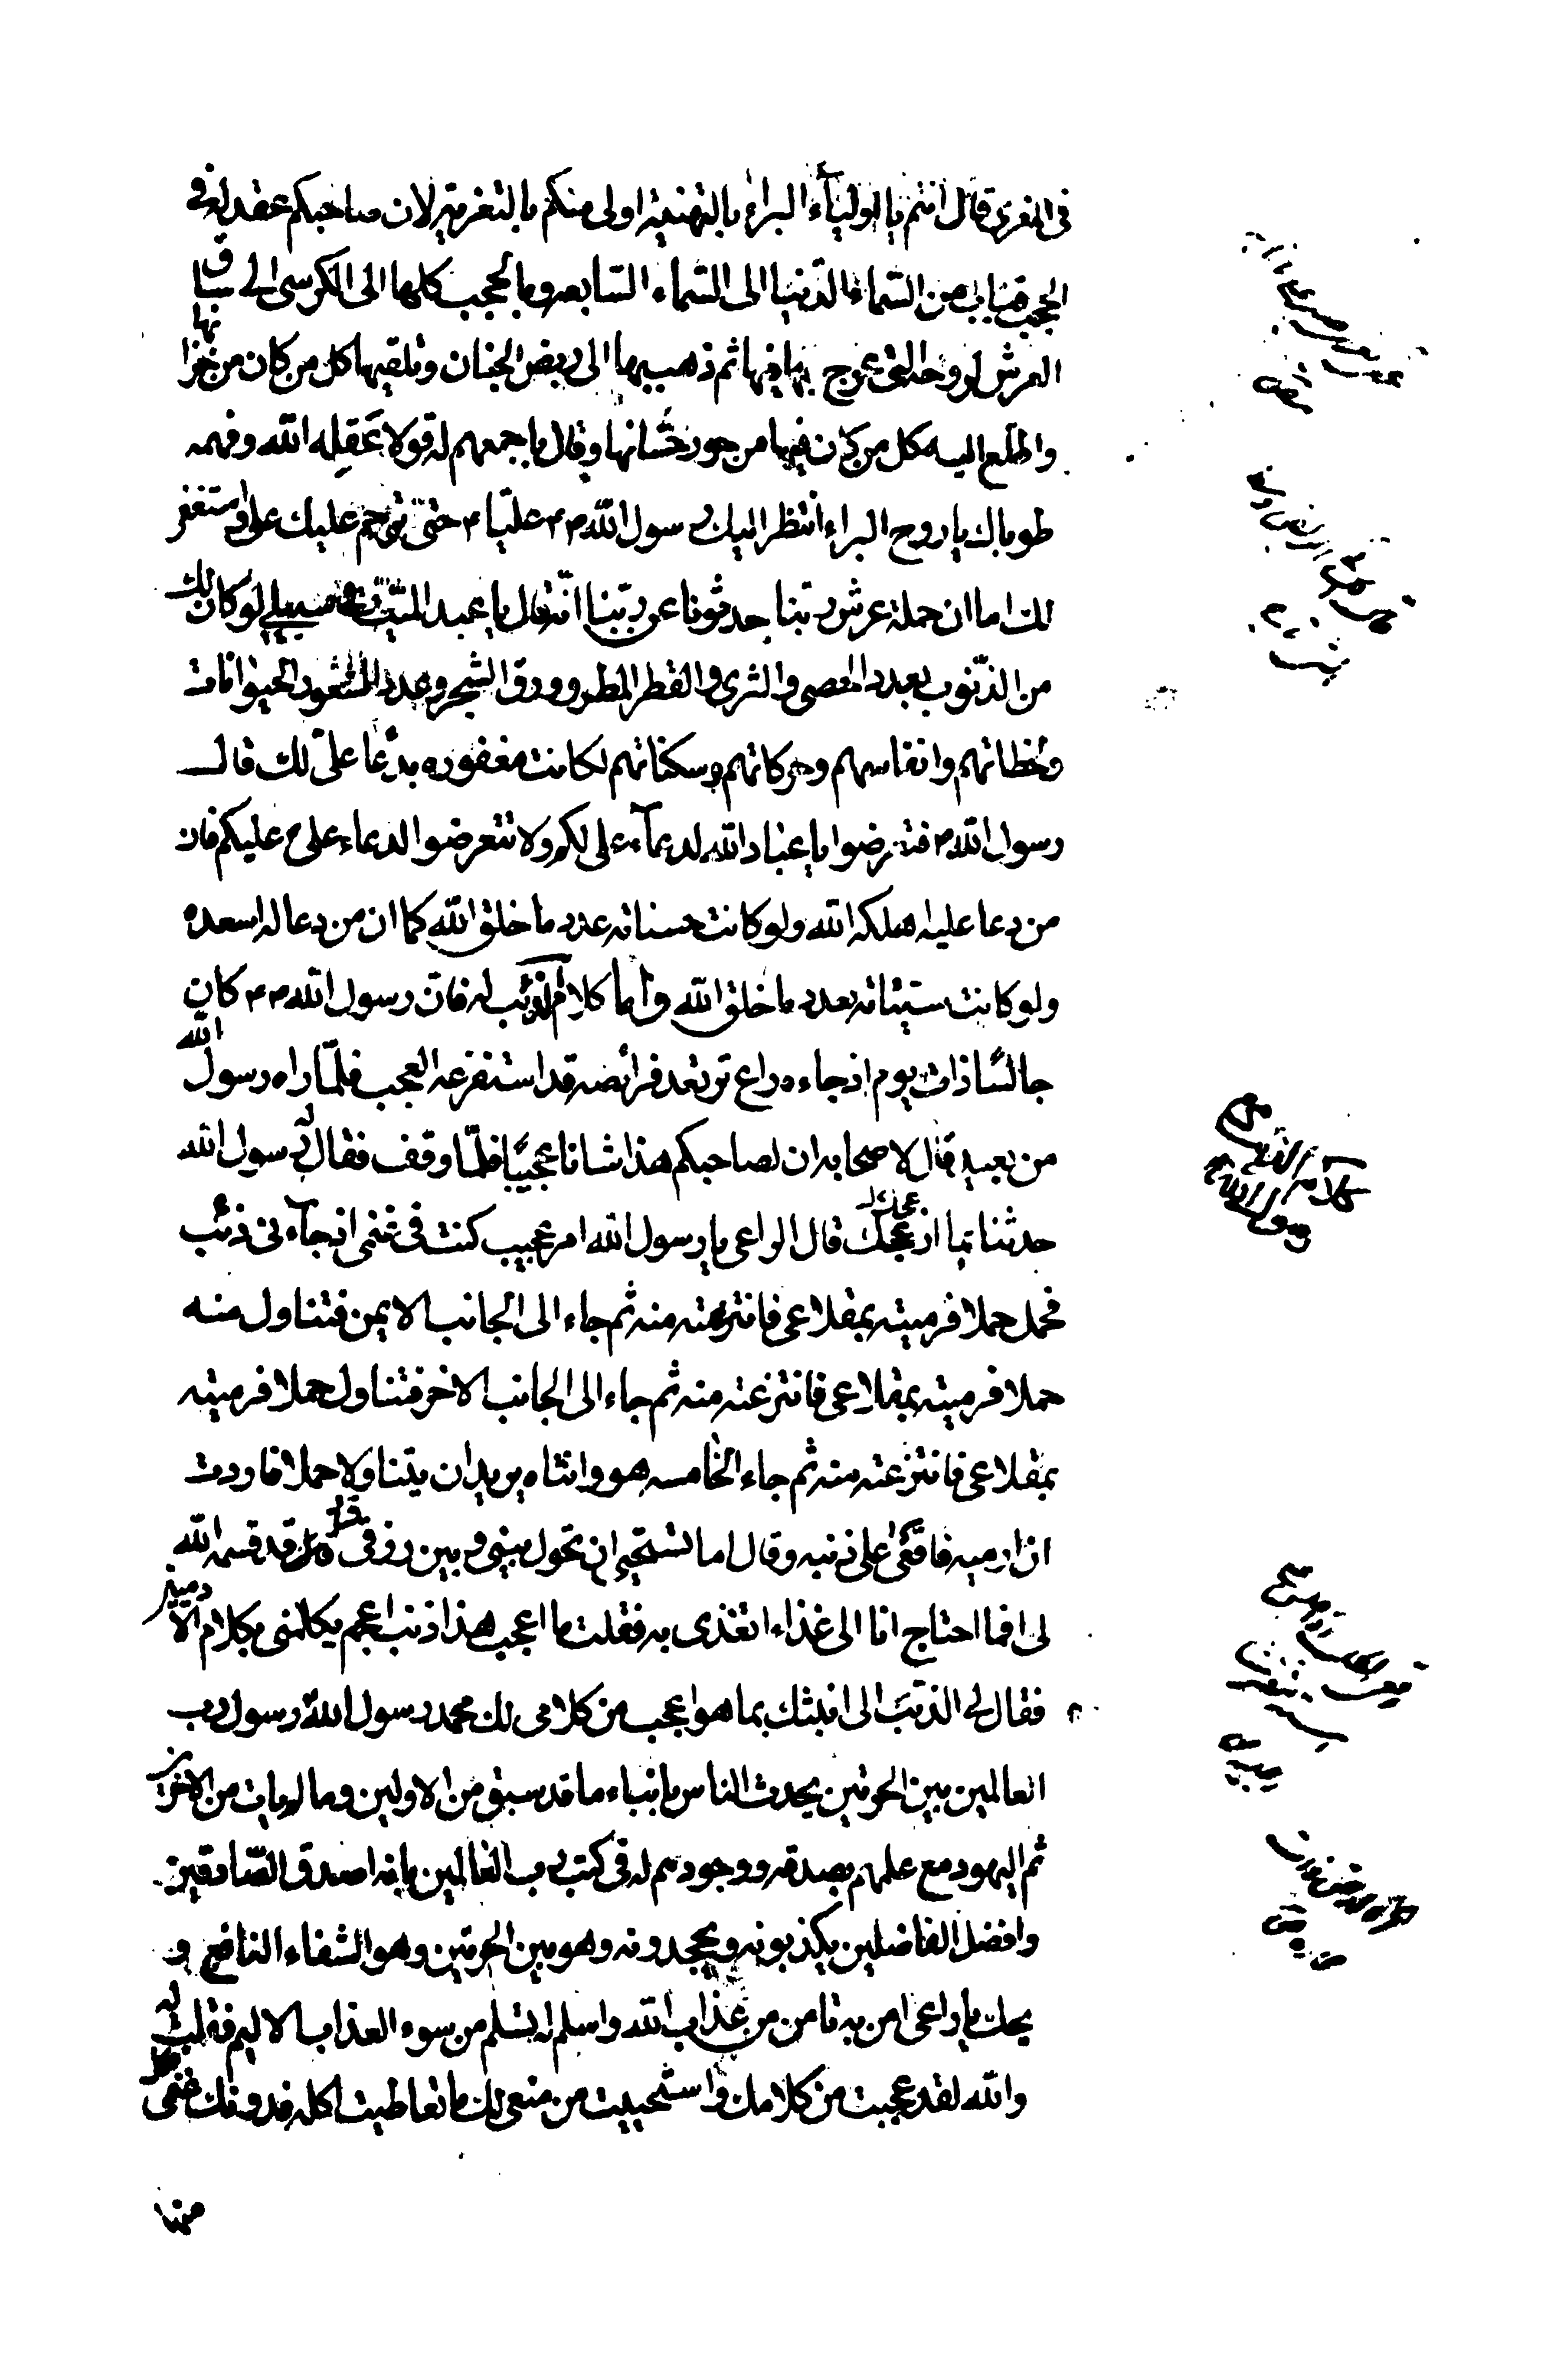 في العزي قال انتم يا اولياء البراء بالتهنية اولى منكم بالتعزية لان صاحبكم عقد له في
الحجب قباب من السماء الدنيا الى السماء السابعة وبالحجب كلها الى الكرسي الى ساق
العرش لروحه التي عرج بها فيها ثم ذهب بها الى ربض الجنان وتلقيها كل من كان من خزانها
واطلع اليه كل من كان فيها من حور حسانها وقال باجمعهم له قولا عقله الله وفهمه
طوباك يا روح البراء انتظر اليك رسول الله ص عليا ع حتى ترحم عليك علي واستغفر
لك اما ان حملة عرش ربنا حدثونا عن ربنا انه قال يا عبد الميت في سبيلي لو كان لك
من الذنوب بعدد الحصى والثرى والقطر المطر وورق الشجر وعدد الشعور الحيوانات
ولحظاتهم وانفاسهم وحركاتهم وسكناتهم لكانت مغفوره بدعاء علي لك قال
رسول الله ص فتعرضوا يا عباد الله لدعآء علي لكم ولا تتعرضوا لدعاء علي ع عليكم فان
من دعا عليه اهلكه الله ولو كانت حسناته عدد ما خلق الله كما ان من دعا له اسعده
ولو كانت سيئاته بعدد ما خلق الله واما كلام الذئب له فان رسول الله ص كان
جالسًا ذات يوم اذ جاءه راع ترتعد فرائصه قد استفزعه العجب فلما راه رسول الله
من بعيد قال لاصحابه ان لصاحبكم هذا شانا عجيبًا فلمّا وقف فقال له رسول الله
حدثنا بما ازعجك قال الراعي يا رسول الله امر عجيب كنت في غنمي اذ جآءني ذئب
فحمل حملا فرميته بمقلاعي فانتزعته منه ثم جاء الى الجانب الايمن فتناول منه
حملا فرميته بمقلاعي فانتزعته منه ثم جاء الى الجانب الاخر فتناول حملا فرميته
بمقلاعي فانتزعته منه ثم جاء الخامسه هو وانثاه يريد ان يتناولا حملا فاردت
ان ارميه فاقعى على ذنبه وقال اما تستحيي ان تحول بيني وبين رزق قد قسمه الله
لي افما احتاج انا الى غذاء اتغذى به فقلت ما اعجب هذا ذئب اعجم يكلمني بكلام الادميين
فقال لي الذئب الى انبئك بما هو اعجب من كلامي لك محمد رسول الله رسول رب
العالمين بين الحرتين يحدث الناس بانباء ما قد سبق من الاولين وما لم يات من الاخرين
ثم اليهود مع علمهم بصدقه ووجودهم له في كتب رب العالمين بانه اصدق الصّادقين
وافضل الفاضلين يكذبونه ويجحدونه وهو بين الحرتين وهو الشفاء النافع و
يحك يا راعي امن به تامن من عذاب الله واسلم له تسلم من سوء العذاب الاليم فقلت له
والله لقد عجبت من كلامك واستحييت من منعي لك ما تعاطيت اكله فدونك غنمي
منها
كلام الذئب مع
رسول الله ص